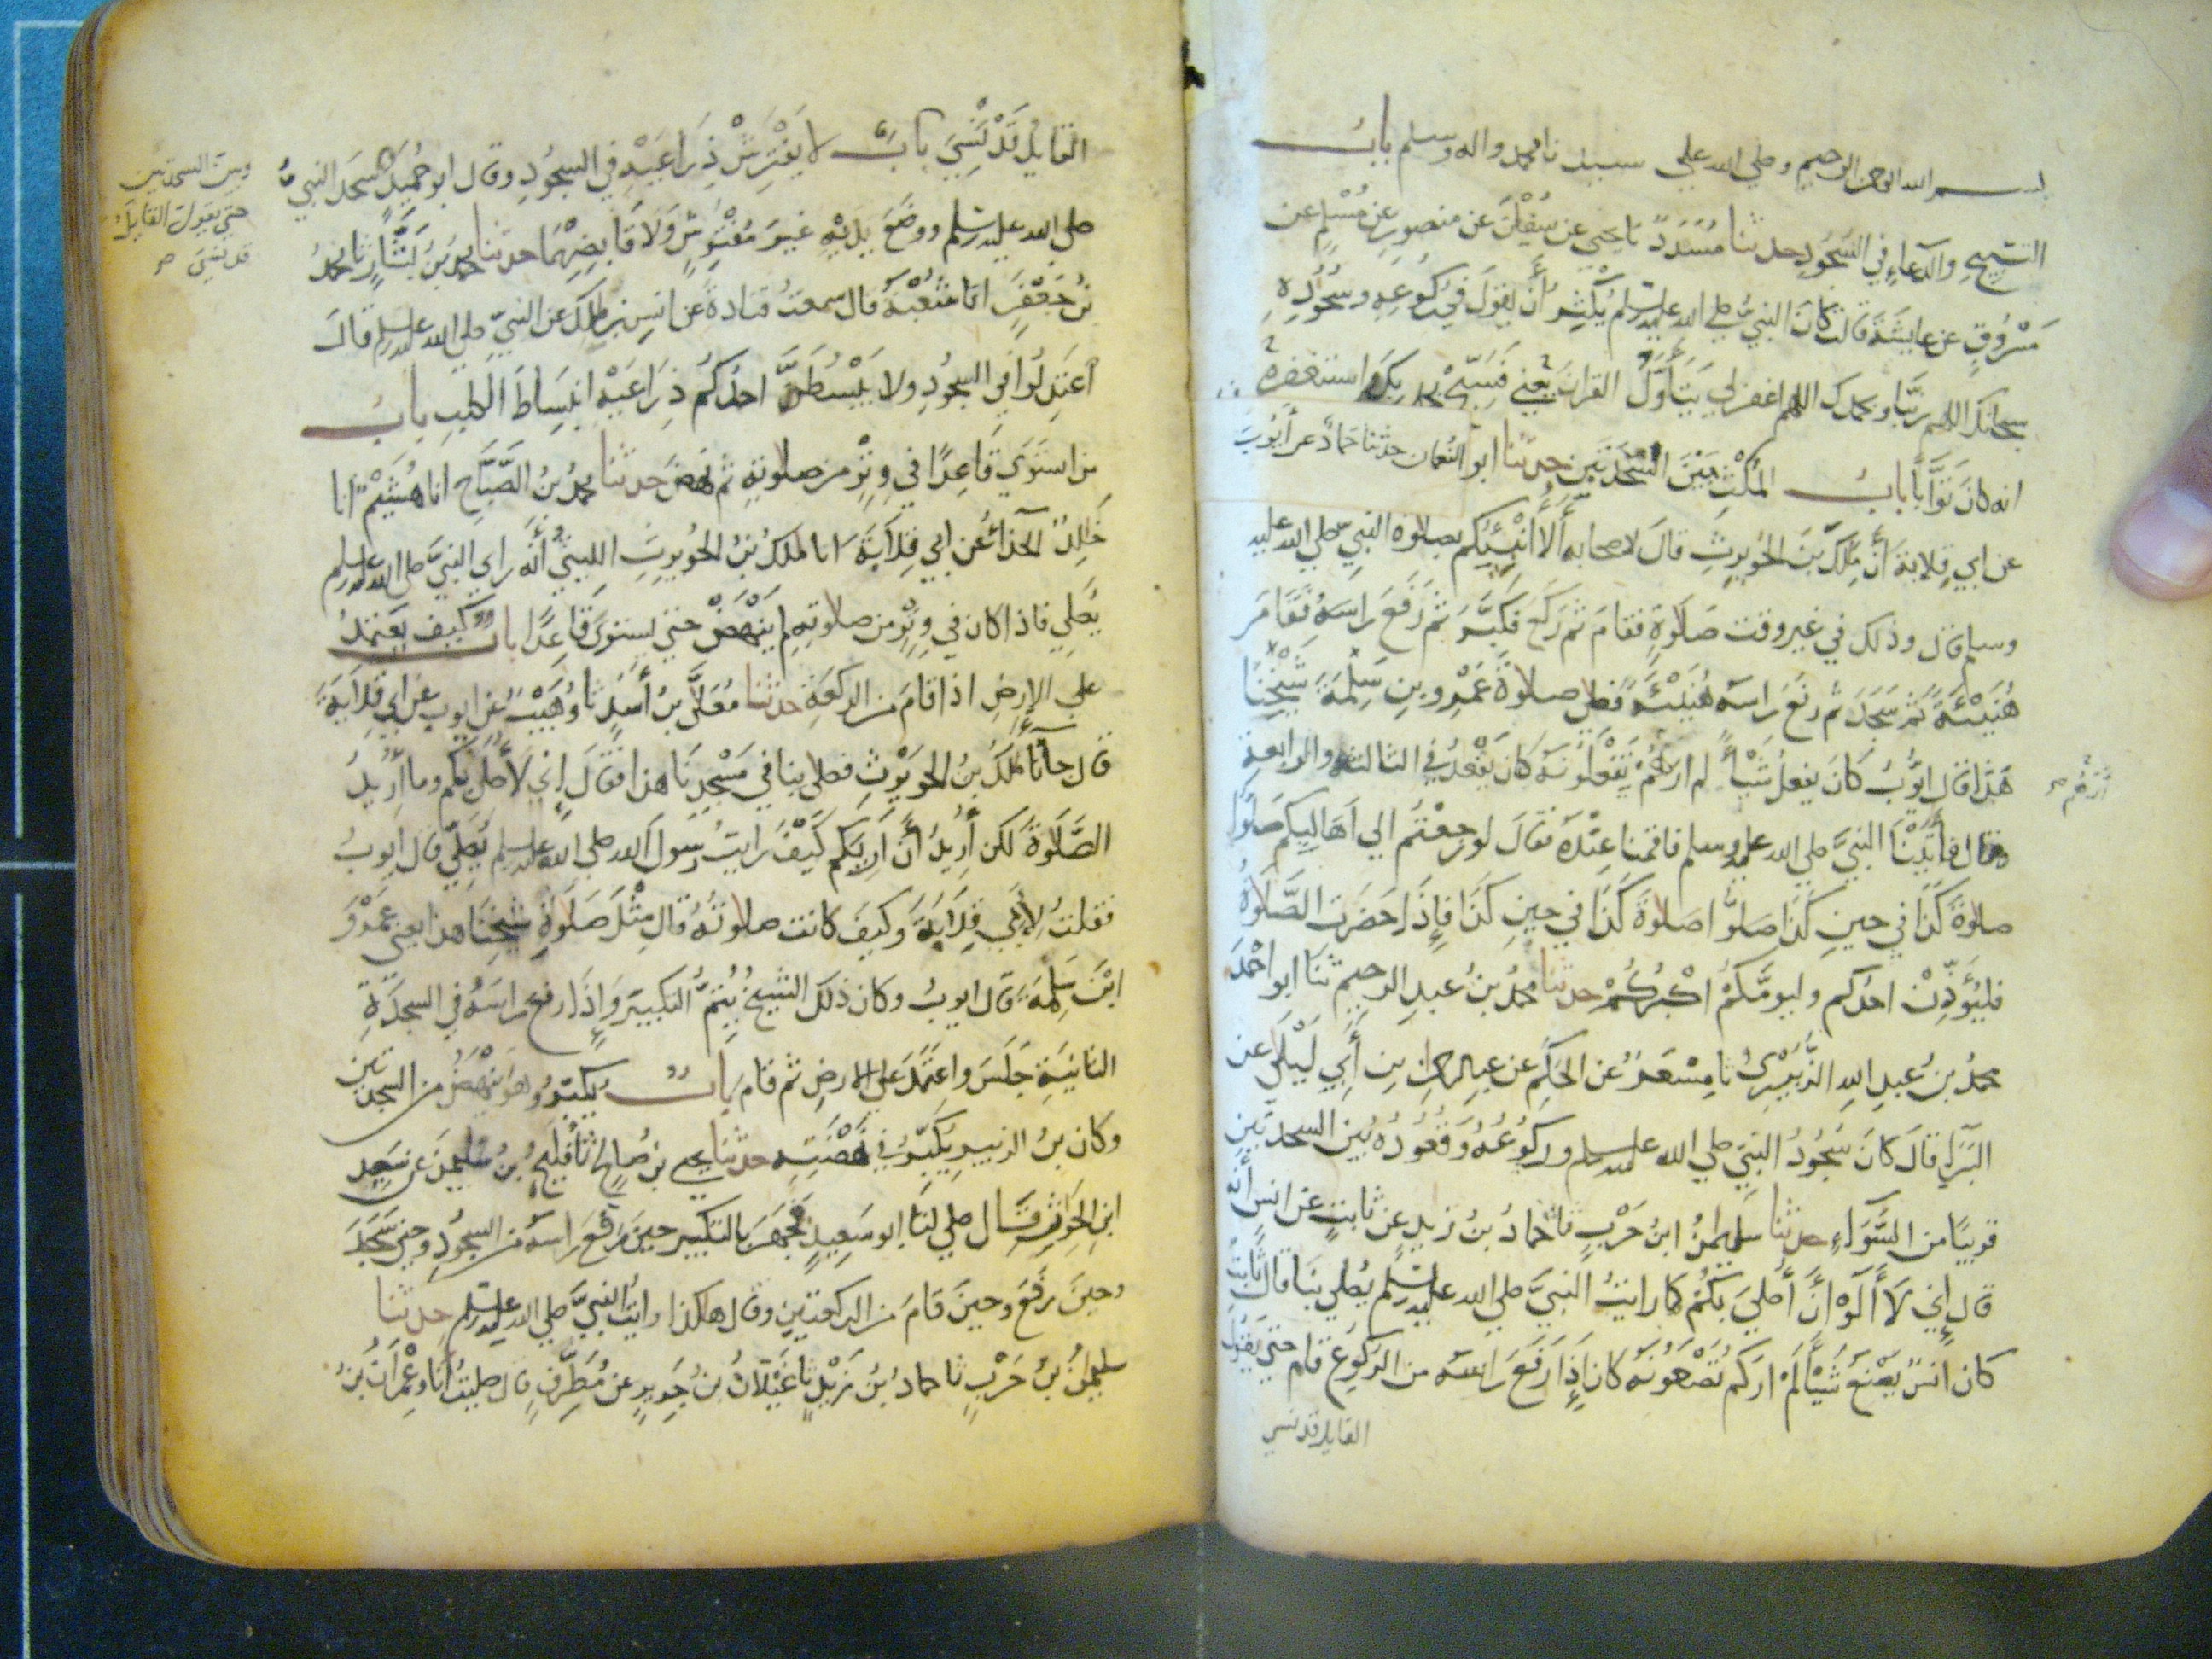 بسم الله الرحمن الرحيم وصلى الله على سيدنا محمد واله وسلم باب
التسبيح والدعاء في السجود حدثنا مسدد نا يحيى عن سفين عن منصور عن مسلم عن
مسروق عن عايشة قالت كان النبي صلى الله عليه وسلم يكثر أن يقول في ركوعه وسجوده
سبحانك اللهم ربنا وبحمدك اللهم اغفر لي يتأول القران يعني فسبح بحمد ربك واستغفره
انه كان توابا باب المكث بين السجدتين حدثنا ابو النعمان حدثنا حماد عن أيوب
عن ابي قلابة أن ملك بن الحويرث قال لاصحابه ألا أنبئكم بصلاوة النبي صلى الله عليه
وسلم قال وذلك في غير وقت صلاوة فقام ثم ركع فكبر ثم رفع راسه فقام
هنيئة ثم سجد ثم رفع راسه هنيئة فصلى صلاوة عمرو بن سلمة شيخنا
هذا قال ايوب كان يفعل شيأ لم اركم يفعلونه كان يقعد في الثالثة والرابعة
أرهم
وقال فأتينا النبي صلى الله عليه وسلم فاقمنا عنده فقال لو رجعتم الي اهاليكم صلوا
صلاوة كذا في حين كذا صلوا صلاوة كذا في حين كذا فإذا حضرت الصلاوة
فليؤذن احدكم وليومكم اكبركم حدثنا محمد بن عبد الرحيم ثنا ابو احمد
محمد بن عبد الله الزبيري نا مسعر عن الحكم عن عبد الرحمن بن أبي ليلى عن
البراء قال كان سجود النبي صلى الله عليه وسلم وركوعه وقعوده بين السجدتين
قريبا من السواء حدثنا سليمن ابن حرب ثنا حماد بن زيد عن ثابت عن انس أنه
قال إني لا آلوا أن أصلي بكم كما رايت النبي صلى الله عليه وسلم يصلي بنا قال ثابت
كان انس يصنع شيأ لم اركم تصنعونه كان إذا رفع راسه من الركوع قام حتي يقول
القايل قد نسي
القايل قد نسي باب لا يفترش ذراعيه في السجود وقال ابو حميد سجد النبي
وبين السجدتين
حتي يقول القايل
قد نسي
صلى الله عليه وسلم ووضع يديه غير مفترش ولا قابضهما حدثنا محمد بن بشار ثنا محمد
بن جعفر انا شعبة قال سمعت قتادة عن انس بن ملك عن النبي صلى الله عليه وسلم قال
اعتدلوا في السجود ولا يبسطن احدكم ذراعيه انبساط الكلب باب
من استوي قاعدا في وتر من صلاوته ثم نهض حدثنا محمد بن الصباح انا هشيم انا
خالد الحذاء عن ابي قلابة انا ملك بن الحويرث الليثي أنه راي النبي صلى الله عليه وسلم
يصلي فاذا كان في وتر من صلاوته لم ينهض حتي يستوي قاعدا باب كيف يعتمد
علي الارض اذا قام من الركعة حدثنا معلى بن أسد ثنا وهيب عن ايوب عن ابي قلابة
قال جآنا ملك بن الحويرث فصلى بنا في مسجدنا هذا فقال إني لأصلي بكم وما أريد
الصلاوة لكن أريد أن أريكم كيف رايت رسول الله صلى الله عليه وسلم يصلي قال ايوب
فقلت لأبي قلابة وكيف كانت صلاوته قال مثل صلاوة شيخنا هذا يعني عمرو
ابن سلمة قال ايوب وكان ذلك الشيخ يتم التكبير وإذا رفع راسه في السجدة
الثانية جلس واعتمد على الارض ثم قام باب يكبر وهو ينهض من السجدتين
وكان بن الزبير يكبر في نهضته حدثنا يحيى بن صالح ثنا فليح بن سليمن عن سعيد
ابن الحارث قال صلي لنا ابو سعيد فجهر بالتكبير حين رفع راسه من السجود وحين سجد
وحين رفع وحين قام من الركعتين وقال هكذا رايت النبي صلى الله عليه وسلم حدثنا
سليمن بن حرب نا حماد بن زيد ثنا غيلان بن جرير عن مطرف قال صليت أنا وعمران بن